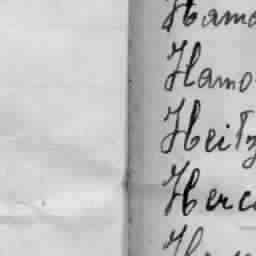 Hamo
Hamo
Heitz
Herc